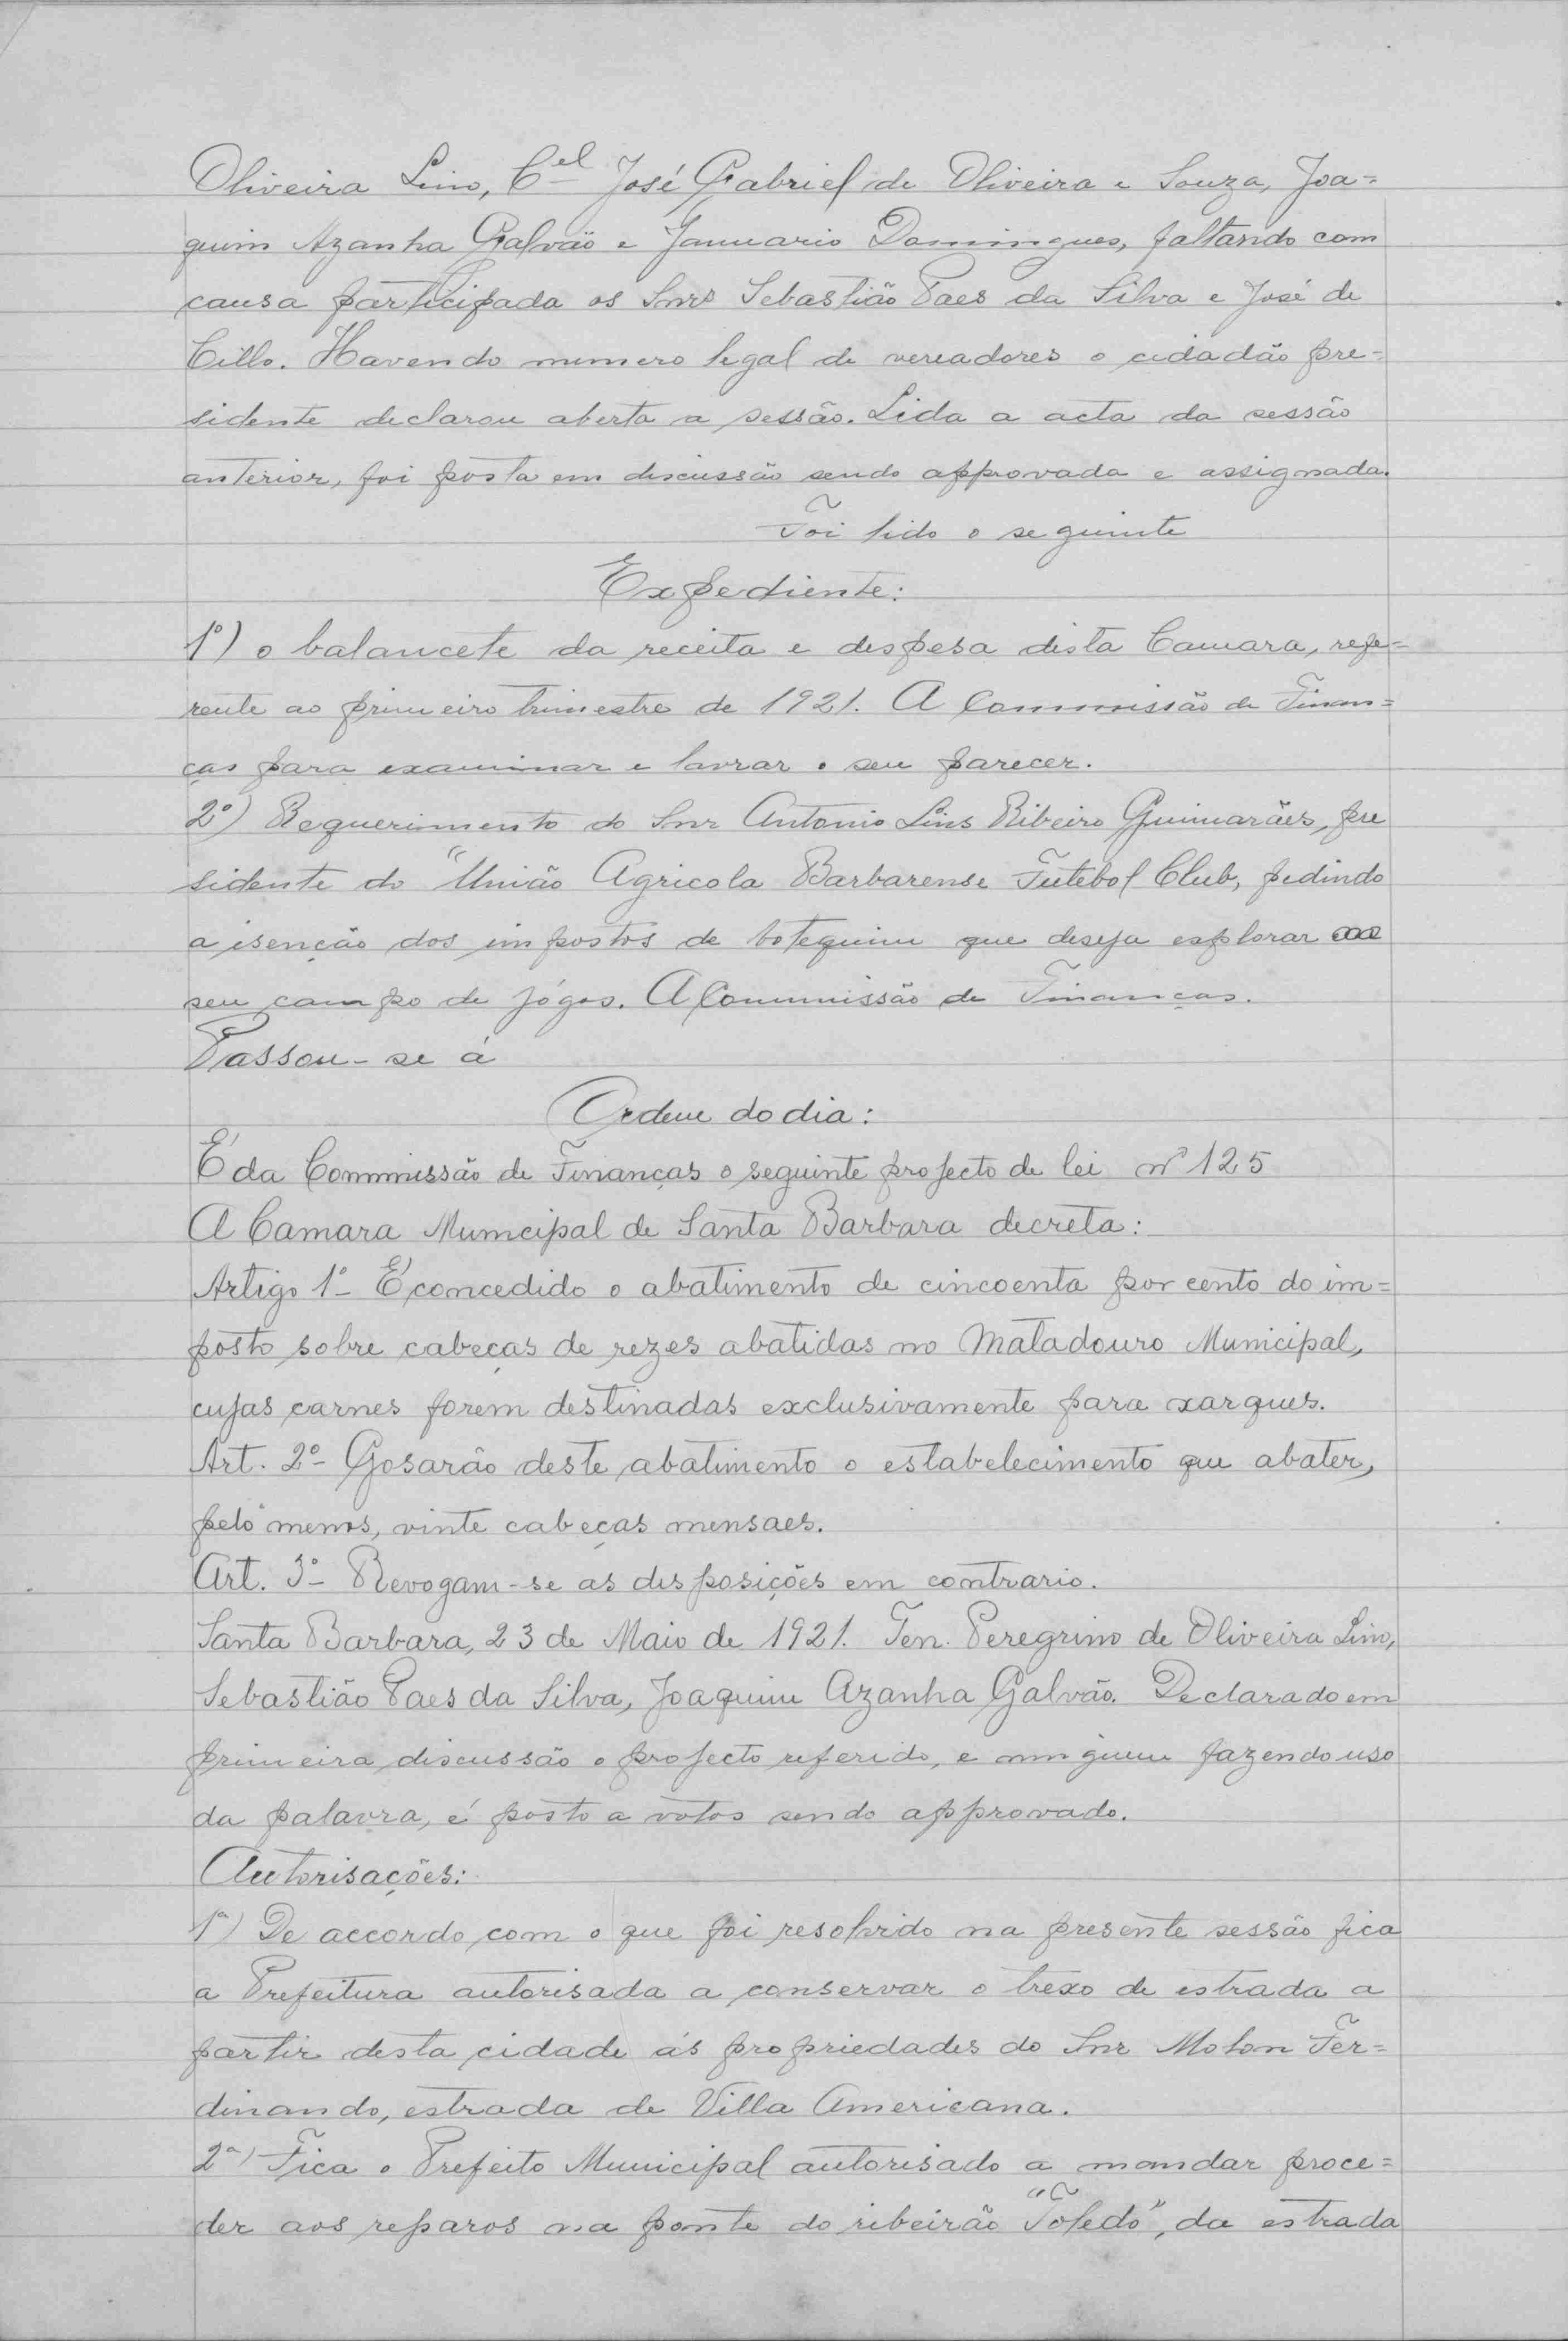 Oliveira Lino, Cel José Gabriel de Oliveira e Souza, Joa=
quim Azanha Galvão e Januario Domingues, faltando com
causa participada os Snrs Sebastião Paes da Silva e José de
Cillo. Havendo numero legal de vereadores o cidadão pre=
sidente declarou aberta a sessão. Lida a acta da sessão
anterior, foi posta em discussão sendo approvada e assignada.
Foi lido o seguinte
Expediente:
1º) o balancete da receita e despesa desta Camara, refe=
rente ao primeiro trimestre de 1921. A Commissão de Finan=
ças para examinar e lavrar o seu parecer.
2º) Requerimento do Snr Antonio Lins Ribeiro Guimarães, pre
sidente do "União Agricola Barbarense Futebol Club, pedindo
a isenção dos impostos de botequim que deseja explorar
seu campo de jógos. A Commissão de Finanças.
Passou-se á
Ordem do dia:
É da Commissão de Finanças o seguinte projecto de lei nº 125
A Camara Municipal de Santa Barbara decreta:
Artigo 1º- É concedido o abatimento de cincoenta por cento do im=
posto sobre cabeças de rezes abatidas no Matadouro Municipal,
cujas carnes forem destinadas exclusivamente para xarques.
Art. 2º- Gosarão deste abatimento o estabelecimento que abater,
pelo menos, vinte cabeças mensaes.
Art. 3º- Revogam-se as disposições em contrario.
Santa Barbara, 23 de Maio de 1921. Ten. Peregrino de Oliveira Lino,
Sebastião Paes da Silva, Joaquim Azanha Galvão. Declarado em
primeira discussão o projecto referido, e ninguem fazendo uso
da palavra, é posto a votos sendo approvado.
Autorisações:
1ª) De accordo com o que foi resolvido na presente sessão fica
a Prefeitura autorisada a conservar o trexo de estrada a
partir desta cidade ás propriedades do Snr Molon Fer=
dinando, estrada de Villa Americana.
2ª) Fica o Prefeito Municipal autorisado a mandar proce=
der aos reparos na ponte do ribeirão "Toledo", da estrada